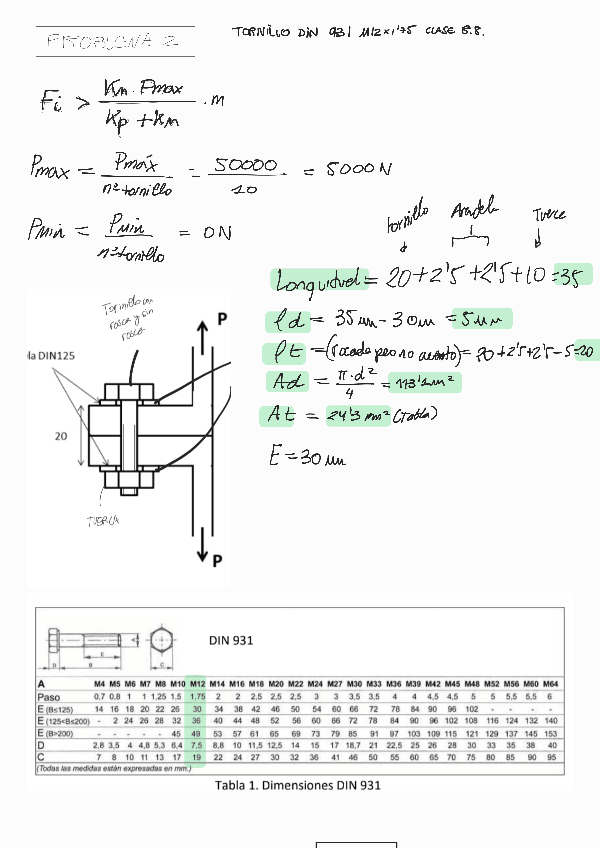 PROBLEMA 2
TORNILLO DIN 931 M12x1'75 CLASE 8.8.
Fi > Km · Pmax / Kp + Km · m
Pmax = Pmáx / nº tornillo = 50000 / 10 = 5000 N
Pmin = Pmin / nº tornillo = 0N
tornillo Arandela Tuerca
Longuitud = 20+2'5+2'5+10=35
ld = 35mm - 30mm = 5mm
lt = (roscada pero no ) = 20+2'5+2'5-5=20
Ad = π·d² / 4 = 113'1mm²
At = 84'3 mm² (Tabla)
E = 30 mm
Tornillo con
rosca y sin
rosca
P
da DIN125
20
TUERCA
P
DIN 931
A E D B C
A M4 M5 M6 M7 M8 M10 M12 M14 M16 M18 M20 M22 M24 M27 M30 M33 M36 M39 M42 M45 M48 M52 M56 M60 M64
Paso 0,7 0,8 1 1 1,25 1,5 1,75 2 2 2,5 2,5 2,5 3 3 3,5 3,5 4 4 4,5 4,5 5 5 5,5 5,5 6
E (B≤125) 14 16 18 20 22 26 30 34 38 42 46 50 54 60 66 72 78 84 90 96 102 - - - -
E (125<B≤200) - 2 24 26 28 32 36 40 44 48 52 56 60 66 72 78 84 90 96 102 108 116 124 132 140
E (B>200) - - - - - 45 49 53 57 61 65 69 73 79 85 91 97 103 109 115 121 129 137 145 153
D 2,8 3,5 4 4,8 5,3 6,4 7,5 8,8 10 11,5 12,5 14 15 17 18,7 21 22,5 25 26 28 30 33 35 38 40
C 7 8 10 11 13 17 19 22 24 27 30 32 36 41 46 50 55 60 65 70 75 80 85 90 95
(Todas las medidas están expresadas en mm.)
Tabla 1. Dimensiones DIN 931